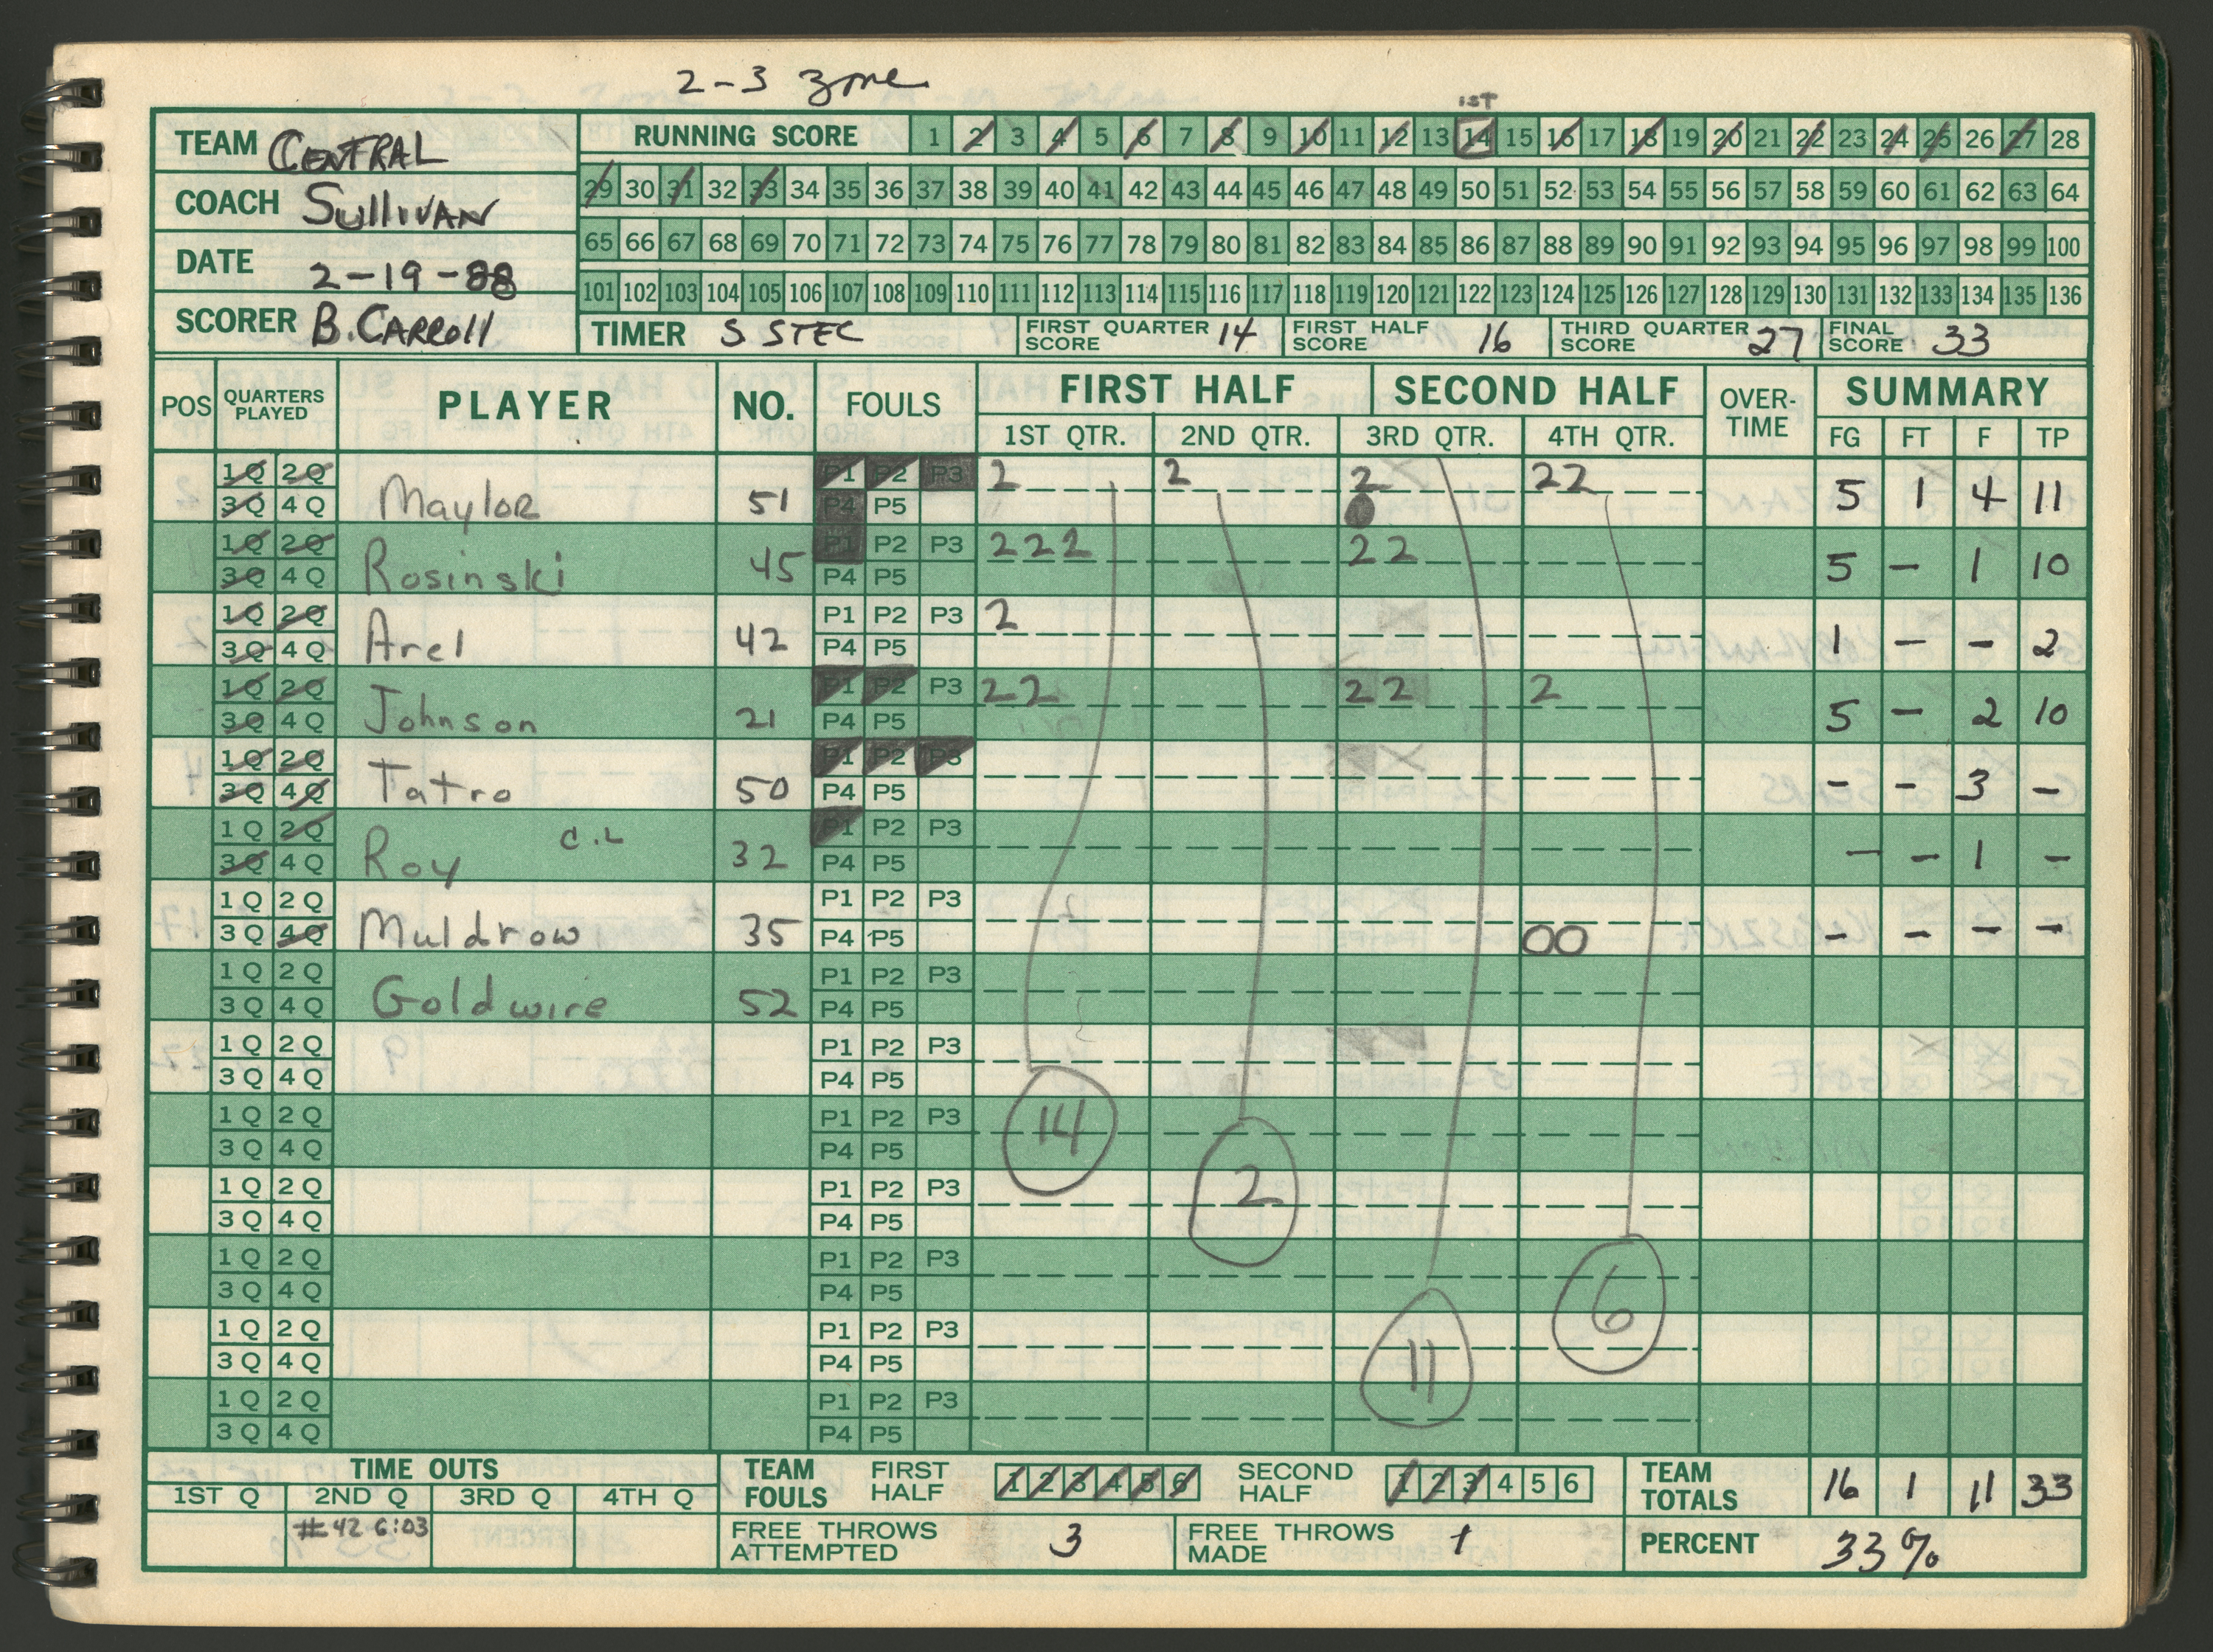 2-3 Zone
1ST
TEAM CENTRAL
RUNNING SCORE 1 2 3 4 5 6 7 8 9 10 11 12 13 14 15 16 17 18 19 20 21 22 23 24 25 26 27 28
COACH Sullivan
29 30 31 32 33 34 35 36 37 38 39 40 41 42 43 44 45 46 47 48 49 50 51 52 53 54 55 56 57 58 59 60 61 62 63 64
DATE 2-19-88
65 66 67 68 69 70 71 72 73 74 75 76 77 78 79 80 81 82 83 84 85 86 87 88 89 90 91 92 93 94 95 96 97 98 99 100
101 102 103 104 105 106 107 108 109 110 111 112 113 114 115 116 117 118 119 120 121 122 123 124 125 126 127 128 129 130 131 132 133 134 135 136
SCORER B. CARROll
TIMER S STEC FIRST QUARTER SCORE 14 FIRST HALF SCORE 16 THIRD QUARTER SCORE 27 FINAL SCORE 33
POS QUARTERS PLAYED PLAYER NO. FOULS FIRST HALF SECOND HALF OVER-TIME SUMMARY
1ST QTR. 2ND QTR. 3RD QTR. 4TH QTR. FG FT F TP
1Q 2Q P1 P2 P3 2 2 2 22
3Q 4Q Maylor 51 P4 P5 5 1 4 11
1Q 2Q P1 P2 P3 222 22
3Q 4Q Rosinski 45 P4 P5 5 - 1 10
1Q 2Q P1 P2 P3 2
3Q 4Q Arel 42 P4 P5 1 - - 2
1Q 2Q P1 P2 P3 22 22 2
3Q 4Q Johnson 21 P4 P5 5 - 2 10
1Q 2Q P1 P2 P3
3Q 4Q Tatro 50 P4 P5 - - 3 -
1Q 2Q C.L P1 P2 P3
3Q 4Q Roy 32 P4 P5 - - 1 -
1Q 2Q P1 P2 P3
3Q 4Q Muldrow 35 P4 P5 OO - - - -
1Q 2Q P1 P2 P3
3Q 4Q Goldwire 52 P4 P5
1Q 2Q P1 P2 P3
3Q 4Q P4 P5
1Q 2Q P1 P2 P3 14
3Q 4Q P4 P5
1Q 2Q P1 P2 P3 2
3Q 4Q P4 P5
1Q 2Q P1 P2 P3
3Q 4Q P4 P5 6
1Q 2Q P1 P2 P3
3Q 4Q P4 P5 11
1Q 2Q P1 P2 P3
3Q 4Q P4 P5
TIME OUTS TEAM FOULS FIRST HALF 1 2 3 4 5 6 SECOND HALF 1 2 3 4 5 6 TEAM TOTALS 16 1 11 33
1ST Q 2ND Q 3RD Q 4TH Q
#42 6:03 FREE THROWS ATTEMPTED 3 FREE THROWS MADE 1 PERCENT 33%